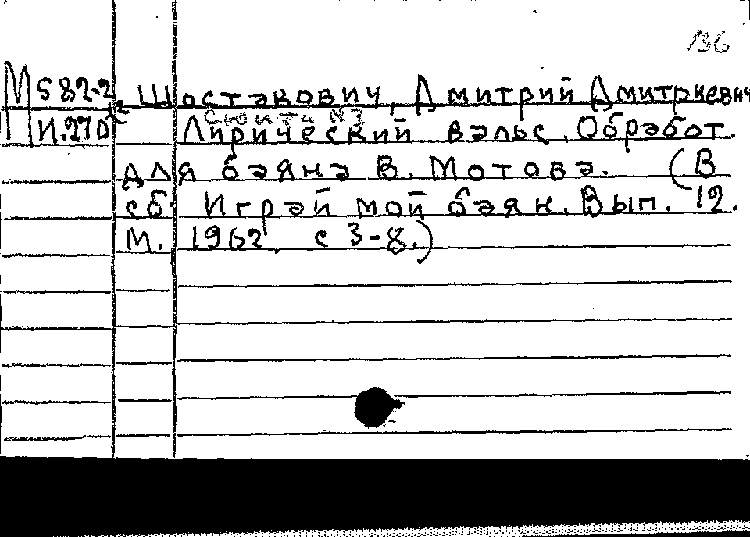 136
М 582-2 Шостакович, Дмитрий Дмитриевич
Сюита №3
И.270 Лирический вальс. Обработ.
для баяна В. Мотова. (В
сб. Играй мой баян. Вып. 12.
М. 1962. с 3-8.)